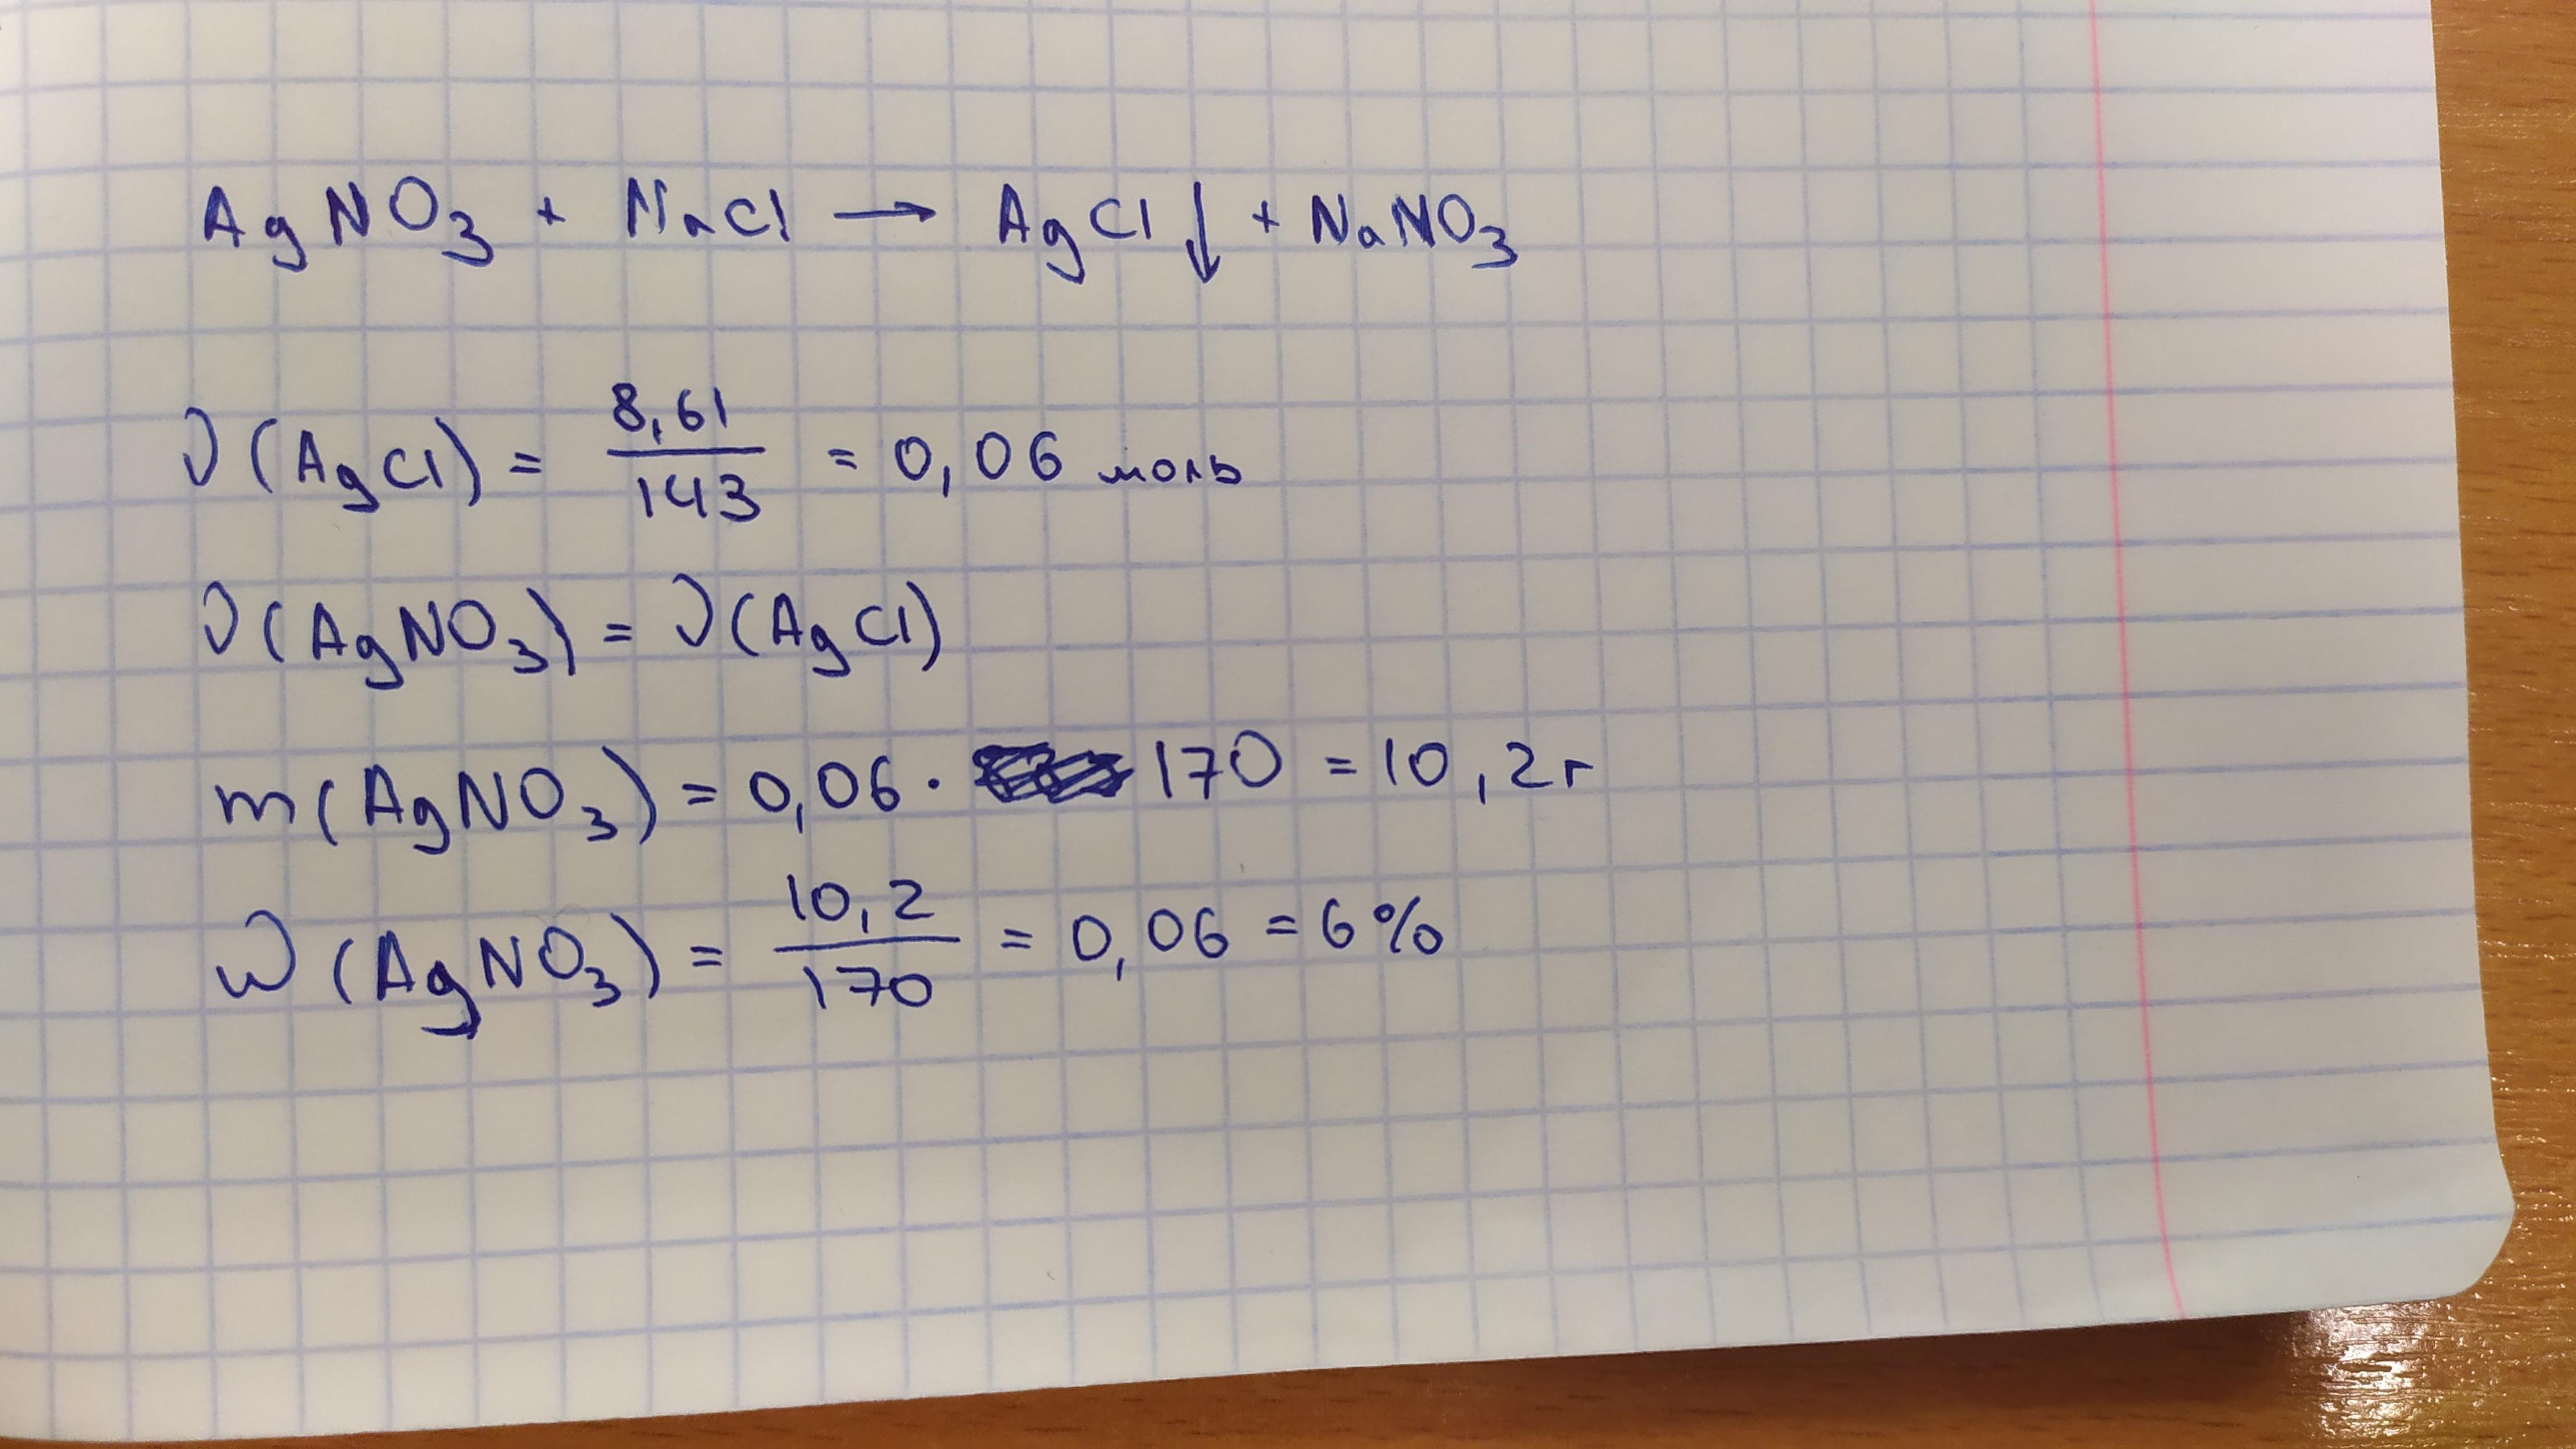 AgNO₃ + NaCl → AgCl↓ + NaNO₃
ν(AgCl) = 8,61/143 = 0,06 моль
ν(AgNO₃) = ν(AgCl)
m(AgNO₃) = 0,06 · 170 = 10,2г
ω(AgNO₃) = 10,2/170 = 0,06 = 6%